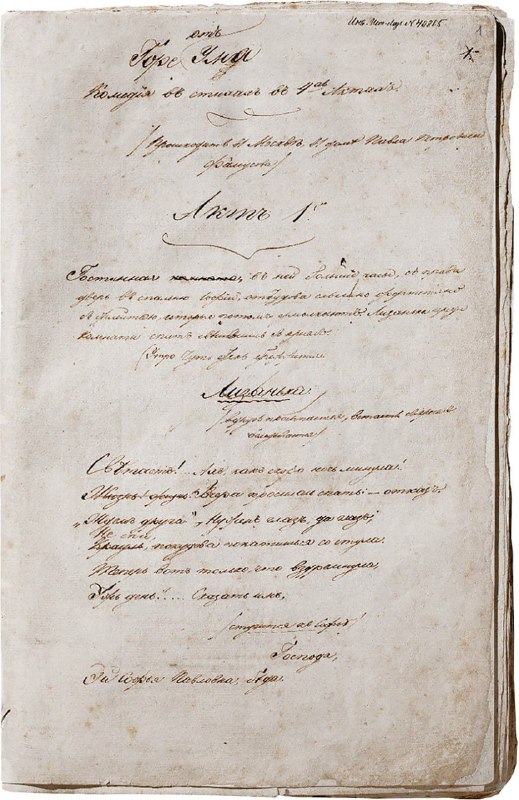 Инв. Музея № 40885
1
отъ
Горе Ума
Комедія въ стихахъ въ 4хъ Актахъ
(Происходитъ въ Москвѣ, въ домѣ Павла
Фамусова)
Актъ 1й
Гостинная комната, въ ней большіе часы, съ права
дверь въ спальню Софіи, откудова слышно фортепіано
съ флейтою, которыя потомъ умолкаютъ. Лизанька среди
комнаты спитъ свѣсившись съ креселъ.
(Утро чуть день брезжится
Лизанька
(вдругъ просыпается, встаетъ съ креселъ
оглядывается)
Свѣтаетъ! Ахъ, какъ скоро ночь минула!
Вчера просилась спать – отказъ.
"Ждемъ друга", Нуженъ глазъ, да глазъ,
Не спи,
покудова не скатишься со стула.
Теперь вотъ только что вздремнула,
Ужъ день!.... Сказать имъ,
(стучится къ Софіи)
Господа,
Эй Софья Павловна, бѣда.